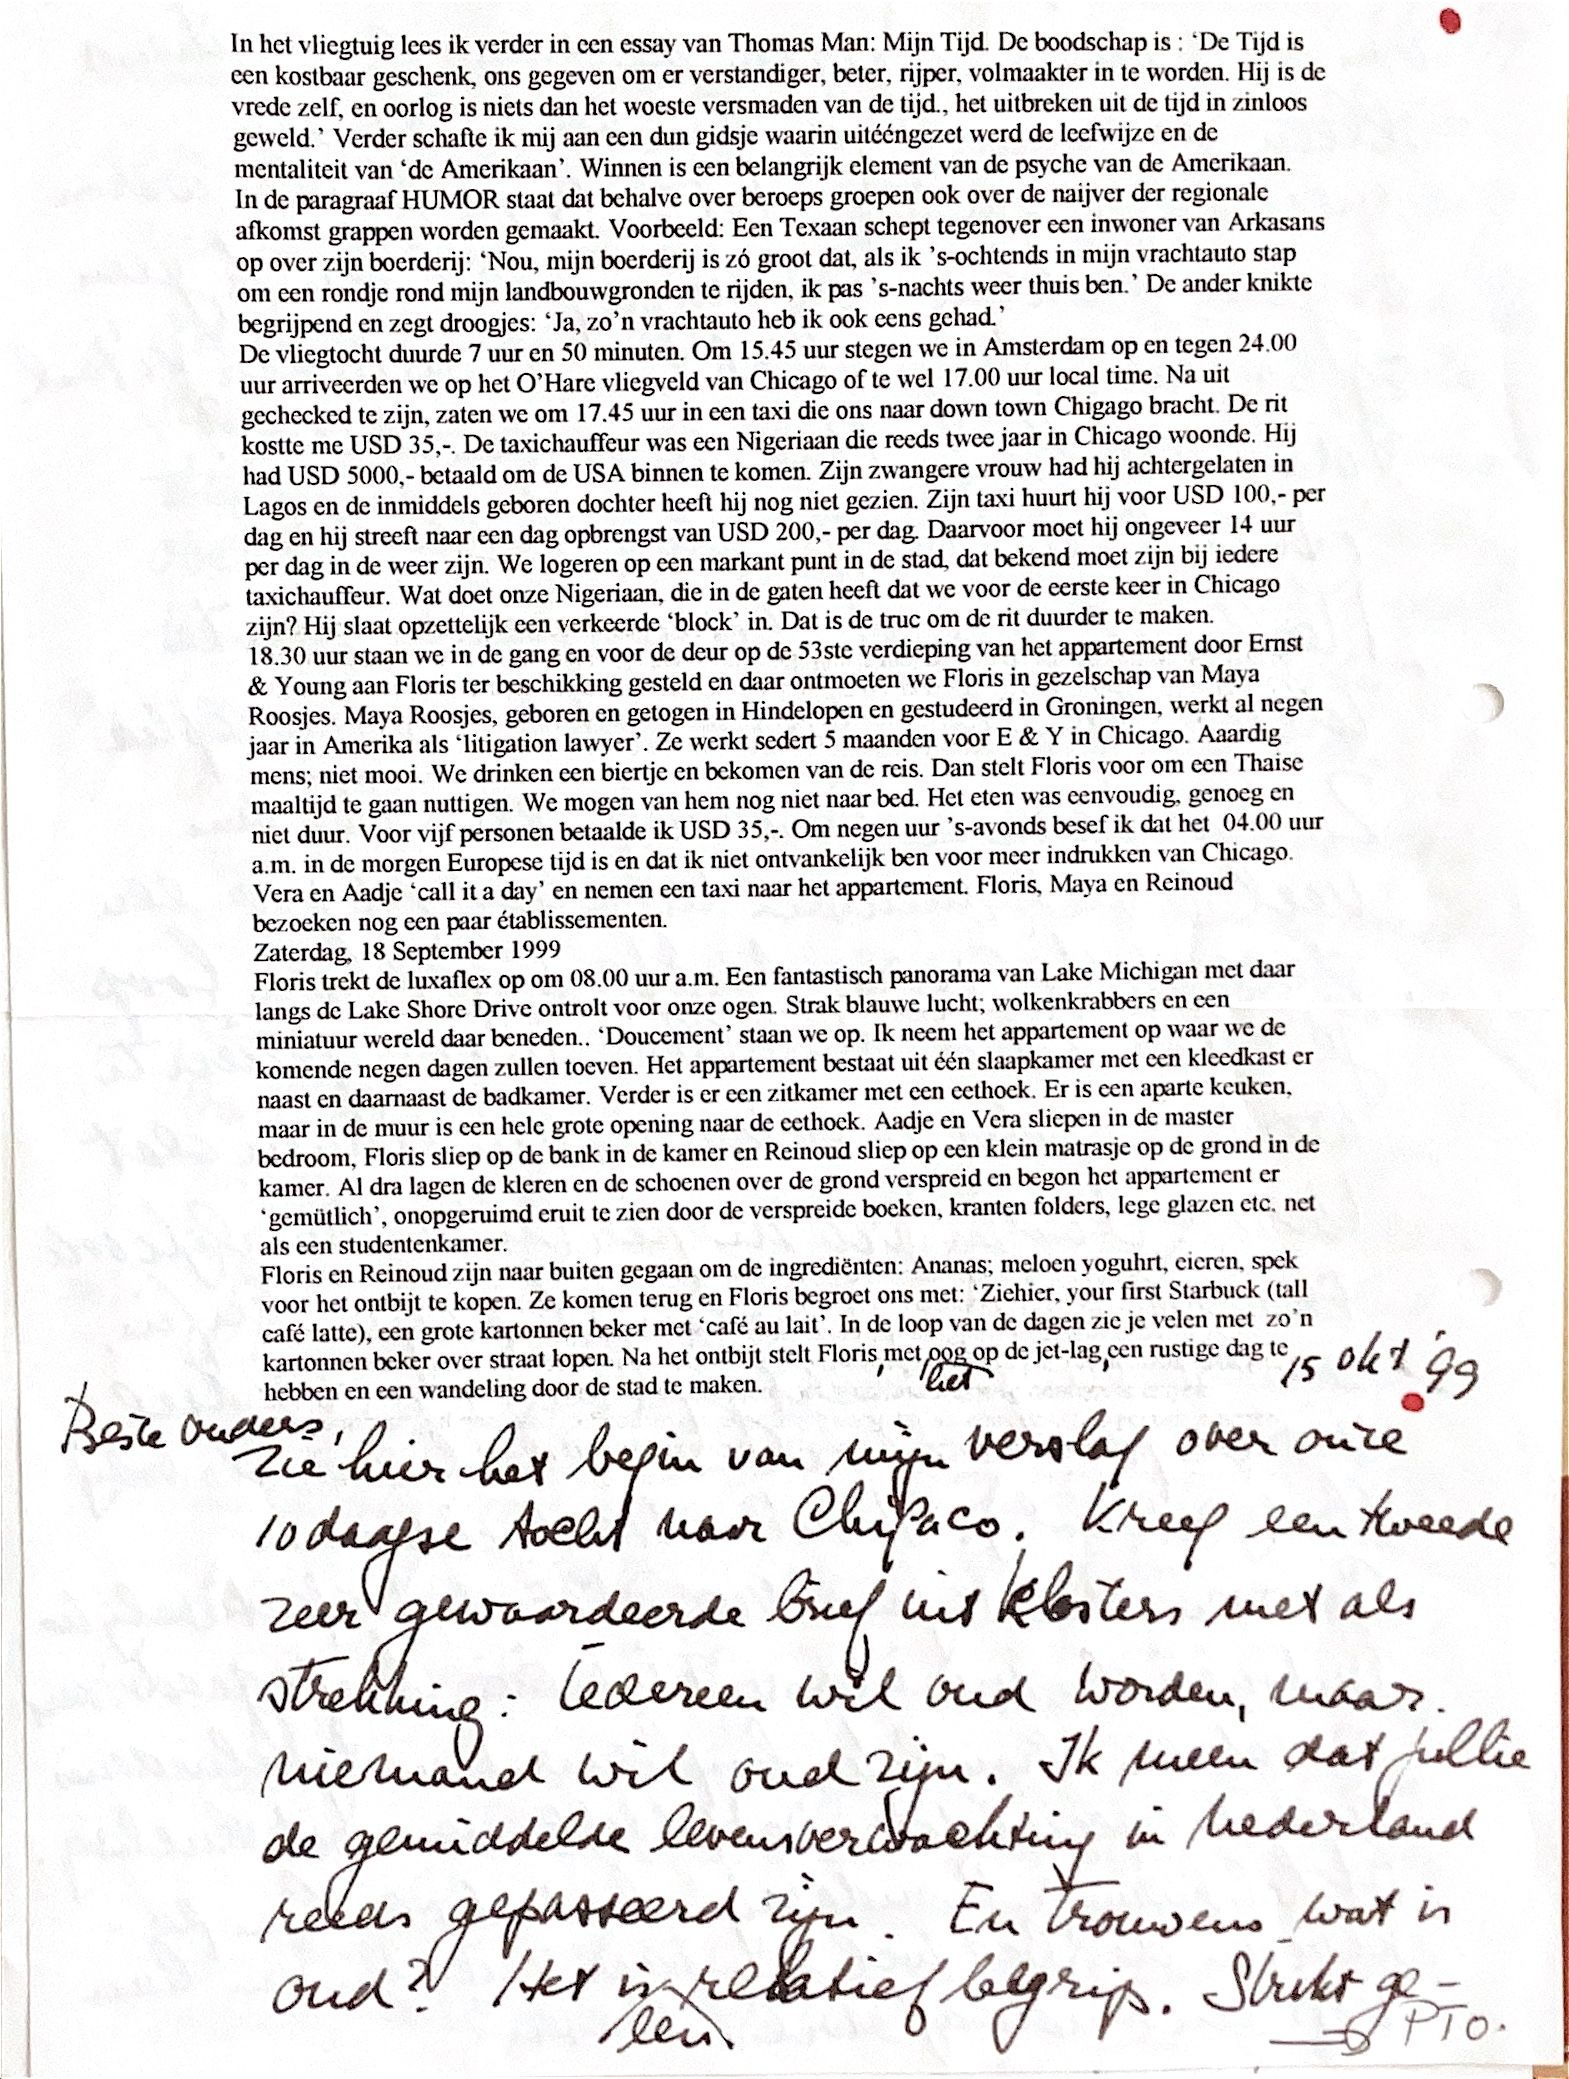 In het vliegtuig lees ik verder in een essay van Thomas Man: Mijn Tijd. De boodschap is : ‘De Tijd is
een kostbaar geschenk, ons gegeven om er verstandiger, beter, rijper, volmaakter in te worden. Hij is de
vrede zelf, en oorlog is niets dan het woeste versmaden van de tijd., het uitbreken uit de tijd in zinloos
geweld.’ Verder schafte ik mij aan een dun gidsje waarin uitééngezet werd de leefwijze en de
mentaliteit van ‘de Amerikaan’. Winnen is een belangrijk element van de psyche van de Amerikaan.
In de paragraaf HUMOR staat dat behalve over beroeps groepen ook over de naijver der regionale
afkomst grappen worden gemaakt. Voorbeeld: Een Texaan schept tegenover een inwoner van Arkasans
op over zijn boerderij: ‘Nou, mijn boerderij is zó groot dat, als ik ’s-ochtends in mijn vrachtauto stap
om een rondje rond mijn landbouwgronden te rijden, ik pas ’s-nachts weer thuis ben.’ De ander knikte
begrijpend en zegt droogjes: ‘Ja, zo’n vrachtauto heb ik ook eens gehad.’
De vliegtocht duurde 7 uur en 50 minuten. Om 15.45 uur stegen we in Amsterdam op en tegen 24.00
uur arriveerden we op het O’Hare vliegveld van Chicago of te wel 17.00 uur local time. Na uit
gechecked te zijn, zaten we om 17.45 uur in een taxi die ons naar down town Chigago bracht. De rit
kostte me USD 35,-. De taxichauffeur was een Nigeriaan die reeds twee jaar in Chicago woonde. Hij
had USD 5000,- betaald om de USA binnen te komen. Zijn zwangere vrouw had hij achtergelaten in
Lagos en de inmiddels geboren dochter heeft hij nog niet gezien. Zijn taxi huurt hij voor USD 100,- per
dag en hij streeft naar een dag opbrengst van USD 200,- per dag. Daarvoor moet hij ongeveer 14 uur
per dag in de weer zijn. We logeren op een markant punt in de stad, dat bekend moet zijn bij iedere
taxichauffeur. Wat doet onze Nigeriaan, die in de gaten heeft dat we voor de eerste keer in Chicago
zijn? Hij slaat opzettelijk een verkeerde ‘block’ in. Dat is de truc om de rit duurder te maken.
18.30 uur staan we in de gang en voor de deur op de 53ste verdieping van het appartement door Ernst
& Young aan Floris ter beschikking gesteld en daar ontmoeten we Floris in gezelschap van Maya
Roosjes. Maya Roosjes, geboren en getogen in Hindelopen en gestudeerd in Groningen, werkt al negen
jaar in Amerika als ‘litigation lawyer’. Ze werkt sedert 5 maanden voor E & Y in Chicago. Aaardig
mens; niet mooi. We drinken een biertje en bekomen van de reis. Dan stelt Floris voor om een Thaise
maaltijd te gaan nuttigen. We mogen van hem nog niet naar bed. Het eten was eenvoudig, genoeg en
niet duur. Voor vijf personen betaalde ik USD 35,-. Om negen uur ’s-avonds besef ik dat het 04.00 uur
a.m. in de morgen Europese tijd is en dat ik niet ontvankelijk ben voor meer indrukken van Chicago.
Vera en Aadje ‘call it a day’ en nemen een taxi naar het appartement. Floris, Maya en Reinoud
bezoeken nog een paar établissementen.
Zaterdag, 18 September 1999
Floris trekt de luxaflex op om 08.00 uur a.m. Een fantastisch panorama van Lake Michigan met daar
langs de Lake Shore Drive ontrolt voor onze ogen. Strak blauwe lucht; wolkenkrabbers en een
miniatuur wereld daar beneden.. ‘Doucement’ staan we op. Ik neem het appartement op waar we de
komende negen dagen zullen toeven. Het appartement bestaat uit één slaapkamer met een kleedkast er
naast en daarnaast de badkamer. Verder is er een zitkamer met een eethoek. Er is een aparte keuken,
maar in de muur is een hele grote opening naar de eethoek. Aadje en Vera sliepen in de master
bedroom, Floris sliep op de bank in de kamer en Reinoud sliep op een klein matrasje op de grond in de
kamer. Al dra lagen de kleren en de schoenen over de grond verspreid en begon het appartement er
‘gemütlich’, onopgeruimd eruit te zien door de verspreide boeken, kranten folders, lege glazen etc. net
als een studentenkamer.
Floris en Reinoud zijn naar buiten gegaan om de ingrediënten: Ananas; meloen yoguhrt, eieren, spek
voor het ontbijt te kopen. Ze komen terug en Floris begroet ons met: ‘Ziehier, your first Starbuck (tall
café latte), een grote kartonnen beker met ‘café au lait’. In de loop van de dagen zie je velen met zo’n
kartonnen beker over straat lopen. Na het ontbijt stelt Floris, met oog op de jet-lag, een rustige dag te
hebben en een wandeling door de stad te maken.
het
15 okt '99
Beste ouders,
Zie hier het begin van mijn verslag over onze
10 daagse tocht naar Chicaco. Kreeg een tweede
zeer gewaardeerde brief uit Klosters met als
strekking: Iedereen wil oud worden, maar
niemand wil oud zijn. Ik meen dat jullie
de gemiddelde levensverwachting in Nederland
reeds gepasseerd zijn. En trouwens wat is
oud? Het is relatief begrip. Strikt ge-
een
PTO.